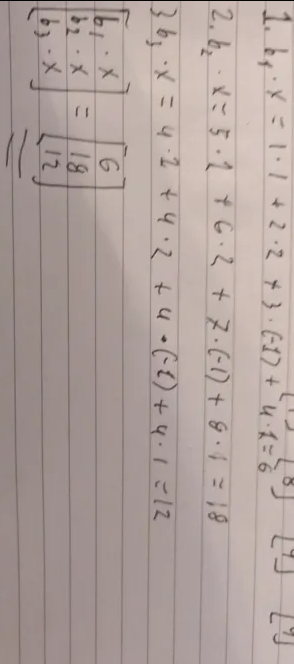 8] [4] [4]
1. b₁ · x = 1 · 1 + 2 · 2 + 3 · (-1) + 4 · 1 = 6
2. b₂ · x = 5 · 1 + 6 · 2 + 7 · (-1) + 8 · 1 = 18
3 b₃ · x = 4 · 2 + 4 · 2 + 4 · (-1) + 4 · 1 = 12
[b₁ · x] [6]
[b₂ · x] = [18]
[b₃ · x] [12]